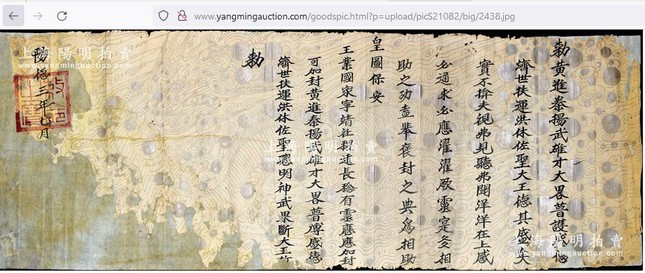 www.yangmingauction.com/goodspic.html?p=upload/picS21082/big/2438.jpg
勅黄進泰揚武雄才大畧普護盛德
濟世扶運洪休佐聖大王德其盛矣
實不揜夫視弗見聽弗聞洋洋在上感
必通求必應濯濯厥靈寔多相
助之功盍舉褒封之典為相助
皇圖保安
王業國家寧靖社稷遠長稔有靈應應加封
可加封黄進泰揚武雄才大畧普博盛德
濟世扶運洪休佐聖聰明神武果斷大王
勅
陽德三年七月
上海陽明拍賣
www.yangmingauction.com
www.yangmingauction.com
上海陽明拍賣
www.yangmingauction.com